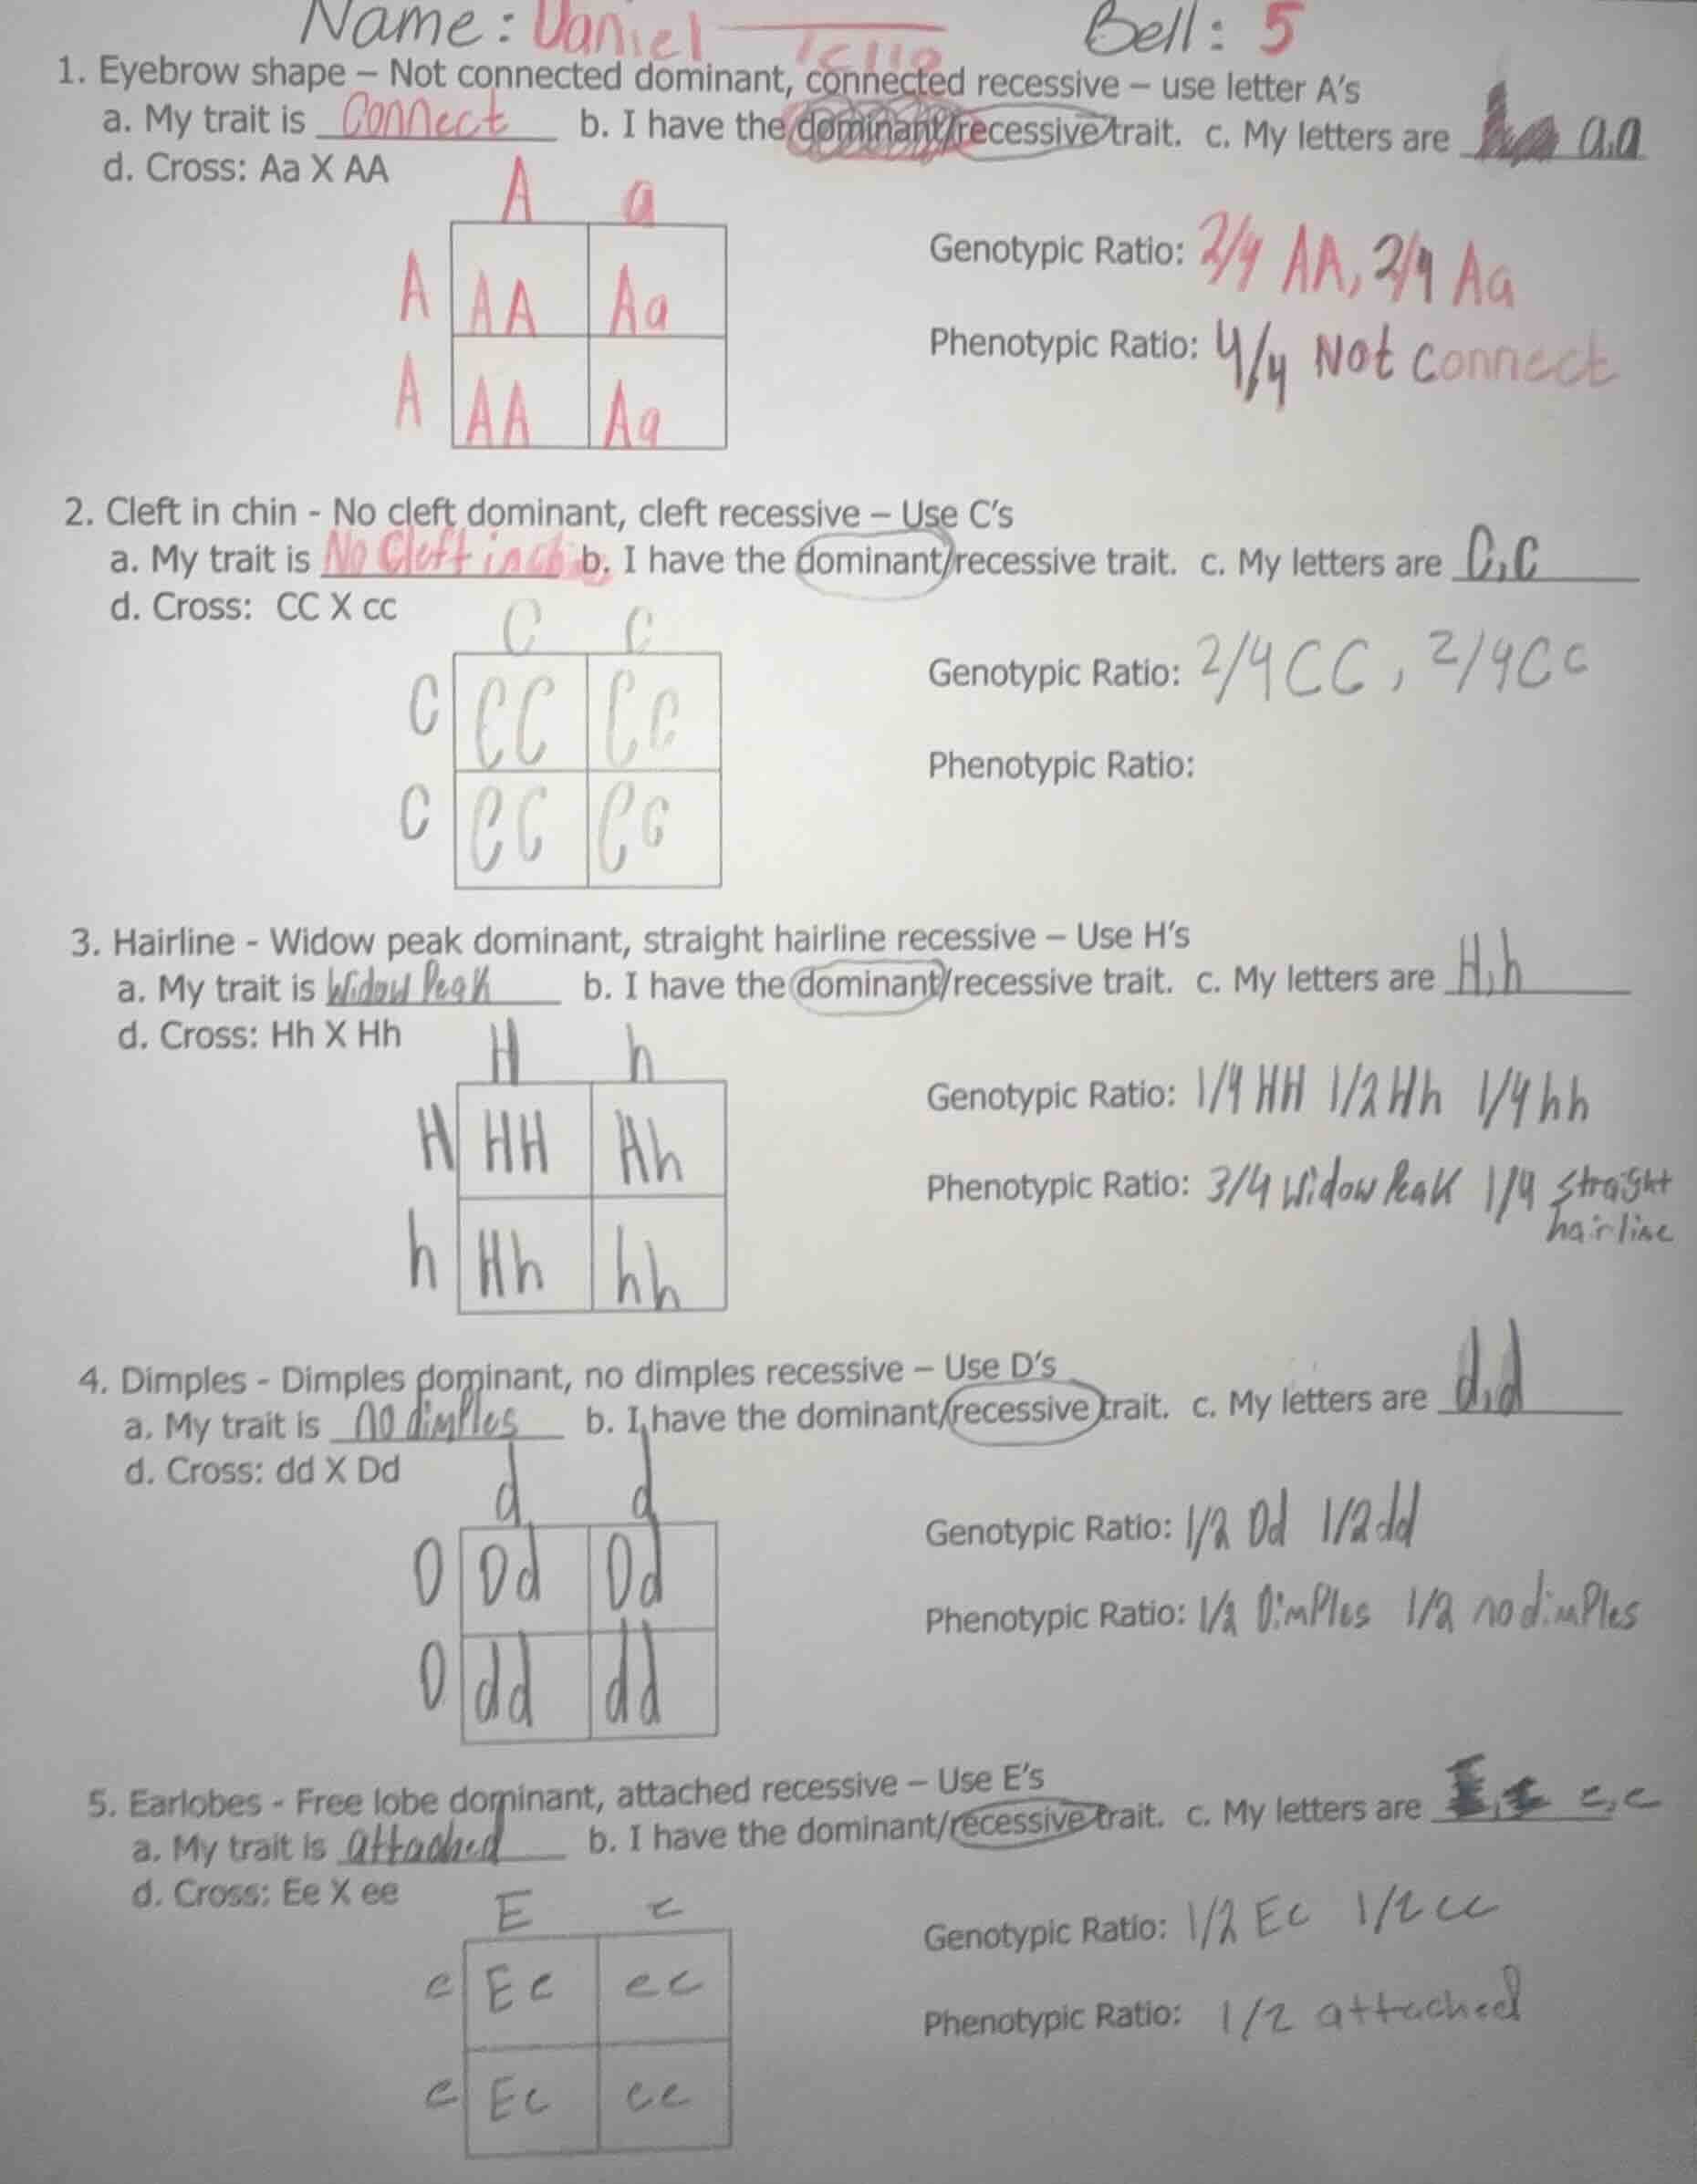 Name: Daniel Bell: 5
1. Eyebrow shape – Not connected dominant, connected recessive – use letter A's
a. My trait is Connect b. I have the dominant/recessive trait. c. My letters are a,a
d. Cross: Aa X AA
A a
A AA Aa
A AA Aa
Genotypic Ratio: 2/4 AA, 2/4 Aa
Phenotypic Ratio: 4/4 Not connect
2. Cleft in chin - No cleft dominant, cleft recessive – Use C's
a. My trait is No Cleft in b. I have the dominant/recessive trait. c. My letters are C,c
d. Cross: CC X cc
C c
C CC Cc
C CC Cc
Genotypic Ratio: 2/4 CC, 2/4 Cc
Phenotypic Ratio:
3. Hairline - Widow peak dominant, straight hairline recessive – Use H's
a. My trait is Widow Peak b. I have the dominant/recessive trait. c. My letters are H,h
d. Cross: Hh X Hh
H h
H HH Hh
h Hh hh
Genotypic Ratio: 1/4 HH 1/2 Hh 1/4 hh
Phenotypic Ratio: 3/4 Widow Peak 1/4 straight
hairline
4. Dimples - Dimples dominant, no dimples recessive – Use D's
a. My trait is no dimples b. I have the dominant/recessive trait. c. My letters are d,d
d. Cross: dd X Dd
d d
D Dd Dd
D dd dd
Genotypic Ratio: 1/2 Dd 1/2 dd
Phenotypic Ratio: 1/2 Dimples 1/2 no dimples
5. Earlobes - Free lobe dominant, attached recessive – Use E's
a. My trait is attached b. I have the dominant/recessive trait. c. My letters are e,e
d. Cross: Ee X ee
E e
e Ee ee
e Ee ee
Genotypic Ratio: 1/2 Ee 1/2 ee
Phenotypic Ratio: 1/2 attached